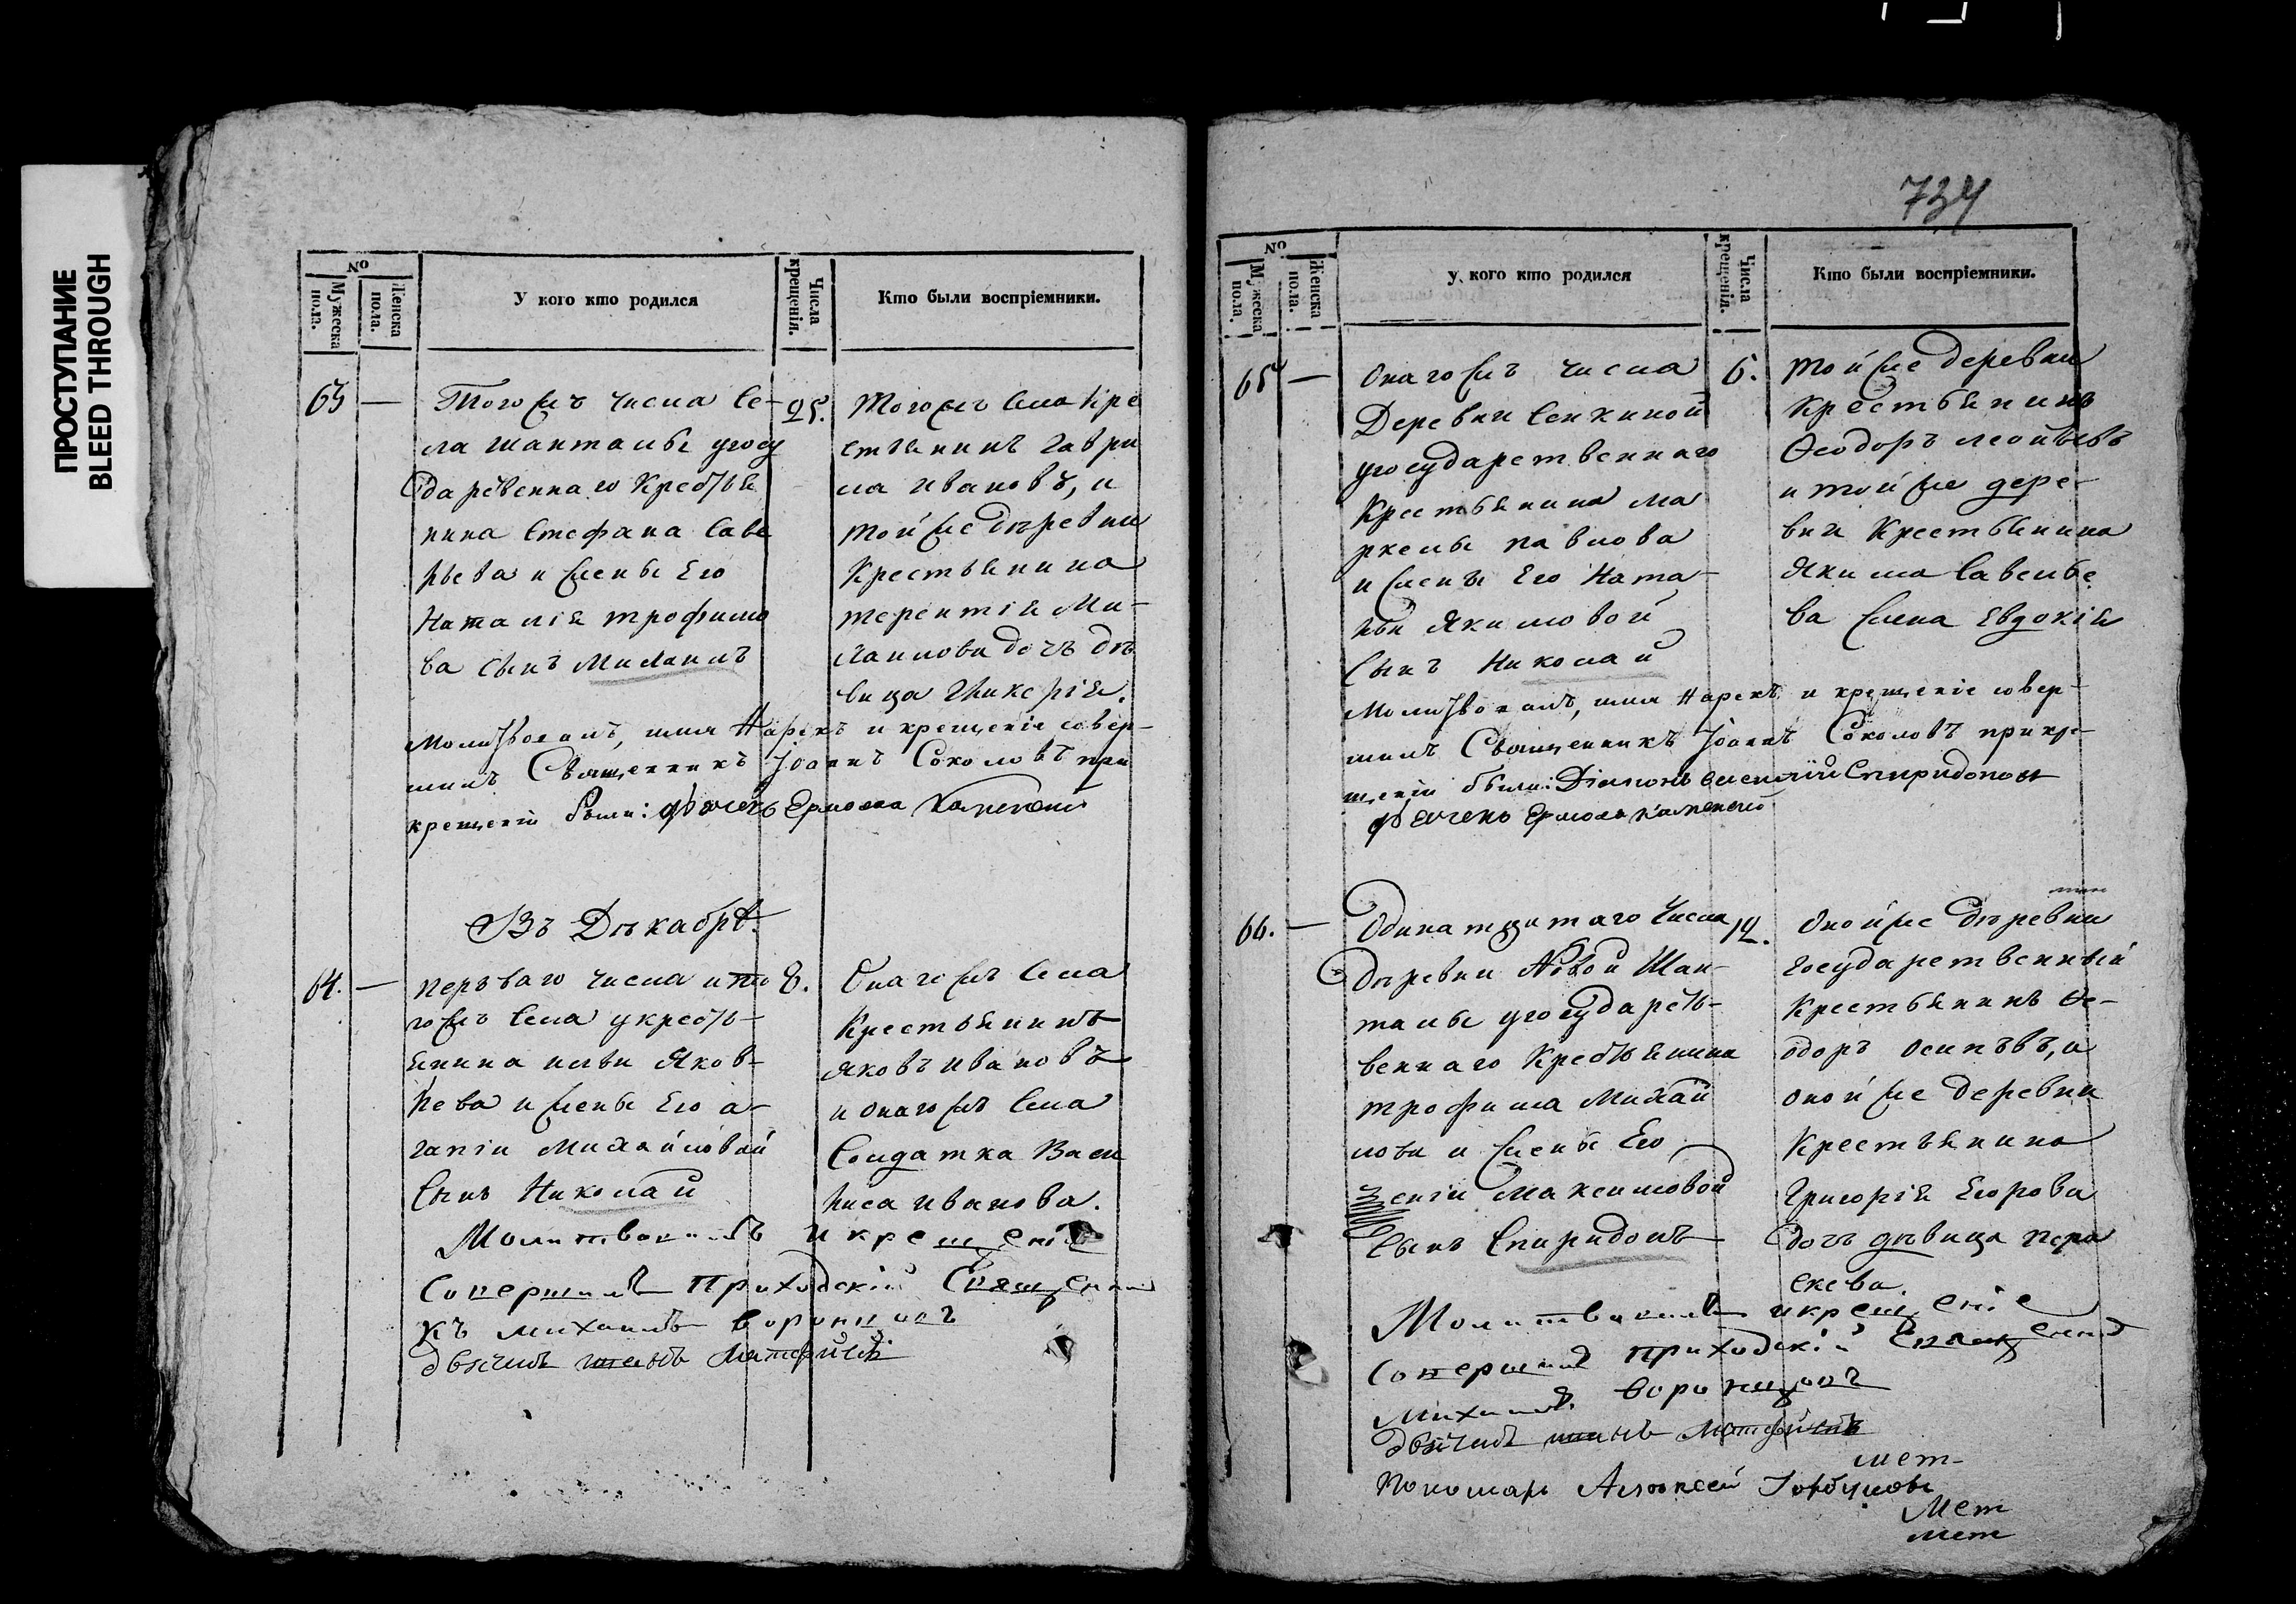 ПРОСТУПАНИЕ
BLEED THROUGH
№
Мужеска пола.
Женска пола.
У кого кто родился
Числа крещенія.
Кто были воспріемники.
63 —
Тогожъ числа Се-
ла Шанталы угосу
дарственнаго Крестья
нина Стефана Саве
рьева и жены Его
Наталія трофимо
ва сынъ Михаилъ
25.
Тогожъ села Кре
стьянинъ Гаври
ла Ивановъ, и
той же деревни
Крестьянина
терентія Ми-
хаилова дочь дѣ
вица Гликерія.
Молитвовалъ, имя Нарекъ и крещеніе совер-
шилъ Священникъ Іоаннъ Соколовъ при
крещеніи были: дьячекъ Ермолай Каменскій
Въ Декабрѣ.
64. —
перваго числа и то
гожъ Села укресть-
янина Ильи Яков-
лева и жены Его а-
гапіи Михайловой
Сынъ Николай
8.
Онагожъ Села
Крестьянинъ
Яковъ Ивановъ
и онагожъ Села
Солдатка Васи
лиса Иванова.
Молитвовалъ и крещеніе
Совершилъ Приходскій Священни
къ Михаилъ Воронцовъ
дьячекъ
734
№
Мужеска пола.
Женска пола.
У кого кто родился
Числа крещенія.
Кто были воспріемники.
65 —
Онагожъ числа
Деревни Сенькиной
угосударственнаго
Крестьянина Ма
ркелы Павлова
и жены Его Ната-
льи Якимовой
Сынъ Николай
6.
Той же деревни
Крестьянинъ
Ѳеодоръ Леонтьевъ
и той же дере-
вни Крестьянина
Якима Савелье
ва жена Евдокія
Молитвовалъ, имя Нарекъ и крещеніе совер-
шилъ Священникъ Іоаннъ Соколовъ при кре-
щеніи были: Діаконъ Спиридоновъ
дьячекъ Ермолай Каменскій
66. —
Одинатцатаго Числа
Деревни Новой Шан-
талы угосударст-
веннаго Крестьянина
трофима Михай
лова и жены Его
Максимовой
Сынъ Спиридонъ
12.
Оной же деревни
Государственный
Крестьянинъ Ѳе-
одоръ Осиповъ, и
оной же деревни
Крестьянина
Григорія Егорова
дочь дѣвица Пара
скева.
Молитвовалъ и крещеніе
Совершилъ Приходскій Священник
Михаилъ Воронцовъ
дьячекъ
мет-
Пономарь Алексей Горбуновъ
Мет
мет